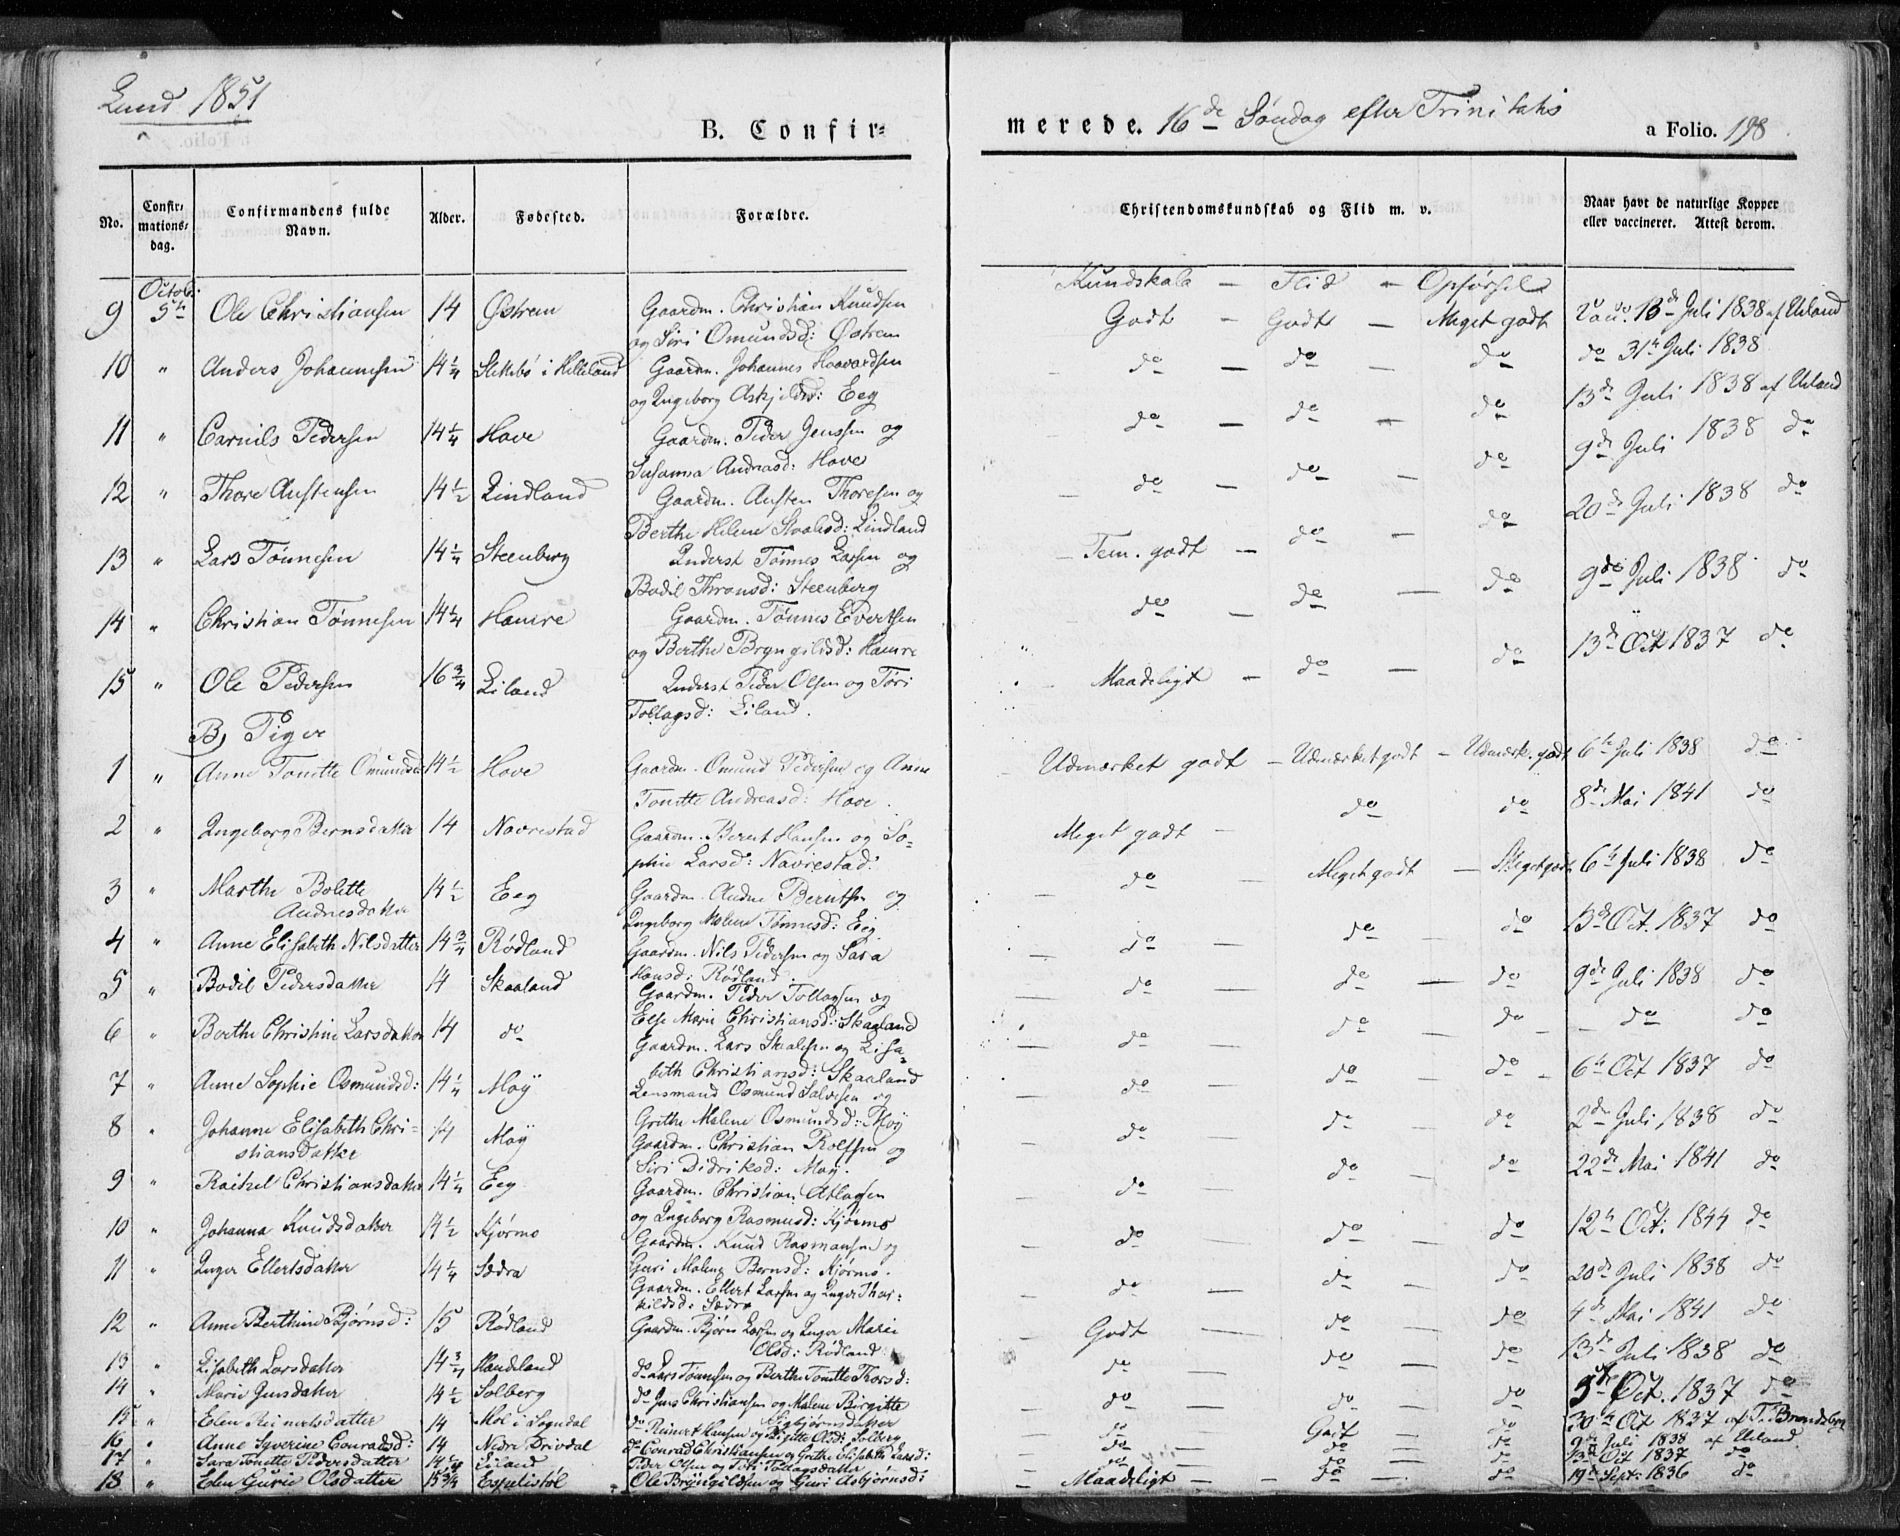 Lund 1851
B. Confirmerede. 16de Søndag efter Trinitatis
a Folio. 198
No. Confirmationsdag. Confirmandens fulde Navn. Alder. Fødested. Forældre. Christendomskundskab og Flid m. v. Naar havt de naturlige Kopper eller vaccineret. Attest derom.
Kundskab — Flid — Opførsel
9 Octob. 5te Ole Christiansen 14 Østrem Gaardm. Christian Knudsen Godt — Godt — Meget godt Vacc. 13de Juli 1838 af Ueland
og Siri Omundsd: Østrem
10 " Anders Johannesen 14 1/4 Slettebø i Helleland Gaardm. Johannes Haavardsen do — do — do do 31te Juli 1838
og Ingeborg Askjeldsd: Eeg 13de Juli 1838 af Ueland
11 " Carnils Pedersen 14 1/4 Hove Gaardm. Peder Jenssen og do — do — do 9de Juli 1838 do
Susanna Andreasd: Hove
12 " Thore Austensen 14 1/2 Lindland Gaardm. Austen Thoresen og — do — do — do 20de Juli 1838 do
Berthe Helene Skaalsd: Lindland
13 " Lars Tønnesen 14 1/4 Steenberg Inderst Tønnes Larsen og — Tem. godt — do — do 9de Juli 1838 do
Bodil Thronsd: Steenberg
14 " Christian Tønnesen 14 1/4 Hamre Gaardm. Tønnes Evertsen do — do — do 13de Oct 1837 do
og Berthe Bryngildsd: Hamre
15 " Ole Pedersen 16 3/4 Eiland Inderst Peder Olsen og Tori — Maadeligt — do — do
Tollagsd: Eiland.
B, Piger
1 " Anne Tonette Omundsd 14 1/2 Hove Gaardm. Omund Pedersen og Anne — Udmærket godt — Udmærket godt — Udmærk. godt 6te Juli 1838 do
Tonette Andreasd: Hove.
2 " Ingeborg Berntsdatter 14 Navrestad Gaardm. Bernt Hansen og So- Meget godt — do do 8de Mai 1841 do
phie Larsd: Navrestad.
3 " Marthe Bolette 14 1/2 Eeg Gaardm. Audne Berntsen og — do — Meget godt — Meget godt 6te Juli 1838 do
Audnesdatter Ingeborg Malene Tønnesd: Eeg
4 " Anne Elisabeth Nilsdatter 14 3/4 Rødland Gaardm. Nils Pedersen og Sara — do — do — do 13de Oct. 1837 do
Hansd: Rødland.
5 " Bodil Pedersdatter 14 Skaaland Gaardm. Peder Tollagsen og — do — do — do 9de Juli 1838 do
Else Marie Christiansd: Skaaland
6 " Berthe Christine Larsdatter 14 do Gaardm. Lars Skaalesen og Elisa- — do — do — do — do do
beth Christiansd: Skaaland
7 " Anne Sophie Osmundsd: 14 1/4 Moÿ Lensmand Osmund Salvesen og — do — do — do — 6te Oct 1837 do
Grethe Malene Osmundsd: Moÿ
8 " Johanne Elisabeth Chri- 14 Moÿ Gaardm. Christian Rolfsen og — do — do — do 2den Juli 1838 do
stiansdatter Siri Didriksd: Moy.
9 " Rakel Christiansdatter 14 1/4 Eeg Gaardm. Christian Atlagsen — do — do — do 22de Mai 1841 do
og Ingeborg Rasmusd: Kjørmo
10 " Johanna Knudsdatter 14 1/2 Kjørmo Gaardm. Knud Rasmussen og — do — do — do 12te Oct: 1844 do
Guri Malene Berntsd: Kjørmo.
11 " Inger Ellertsdatter 14 1/4 Sædra Gaardm. Ellert Larsen og Inger Thor- — do — do — do 20de Juli 1838 do
kildsd: Sædra
12 " Anne Berthine Bjørnsd: 15 Rødland Gaardm. Bjørn Larsen og Inger Marie — Godt — do — do 4de Mai 1841 do
Olsd: Rødland
13 " Elisabeth Larsdatter 14 3/4 Handeland do Lars Tønnesen og Berthe Tonette Thorsd: — do — do — do 13de Juli 1838 do
14 " Marie Jensdatter 14 1/2 Solberg do Jens Christiansen og Malene Birgitte — do — do — do 5te Oct. 1837 do
Sigbjørnsdatter
15 " Elen Reinertsdatter 14 Moi i Sogndal do Reinert Hansen og Birgitte Olsd: Solberg — do — Godt — do 30te Oct 1837 af T. Brandsberg
16 " Anne Syverine Conradsd: 14 Nedre Drivdal do Conrad Christiansen og Grethe Elisabeth Larsd: — do — do — do 9de Juli 1838 af Ueland
17 " Sara Tonette Pedersdatter 14 Eiland Peder Olsen og Tori Tollagsdatter — do — do — do 13de Oct 1837 do
18 " Elen Gurie Olsdatter 15 3/4 Espelistøl Ole Bryngildsen og Guri Asbjørnsd: — Maadeligt — do — do 19de Sept: 1836 do